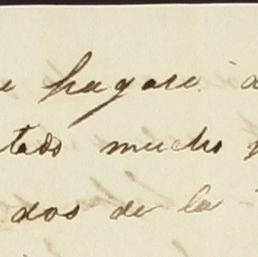 e pagaré a
tado mucho
dos de la